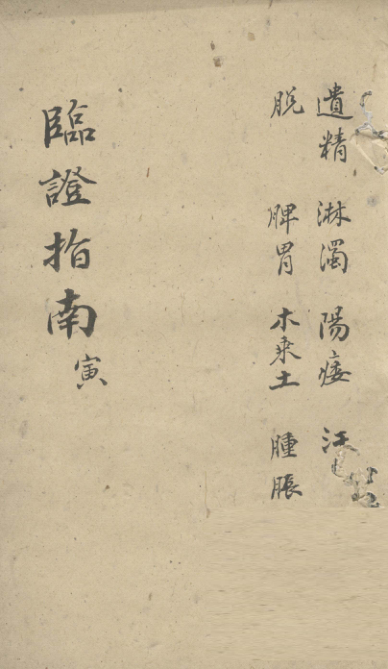 遺精 淋濁 陽痿 汗
脱 脾胃 木乘土 腫脹
臨證指南 寅